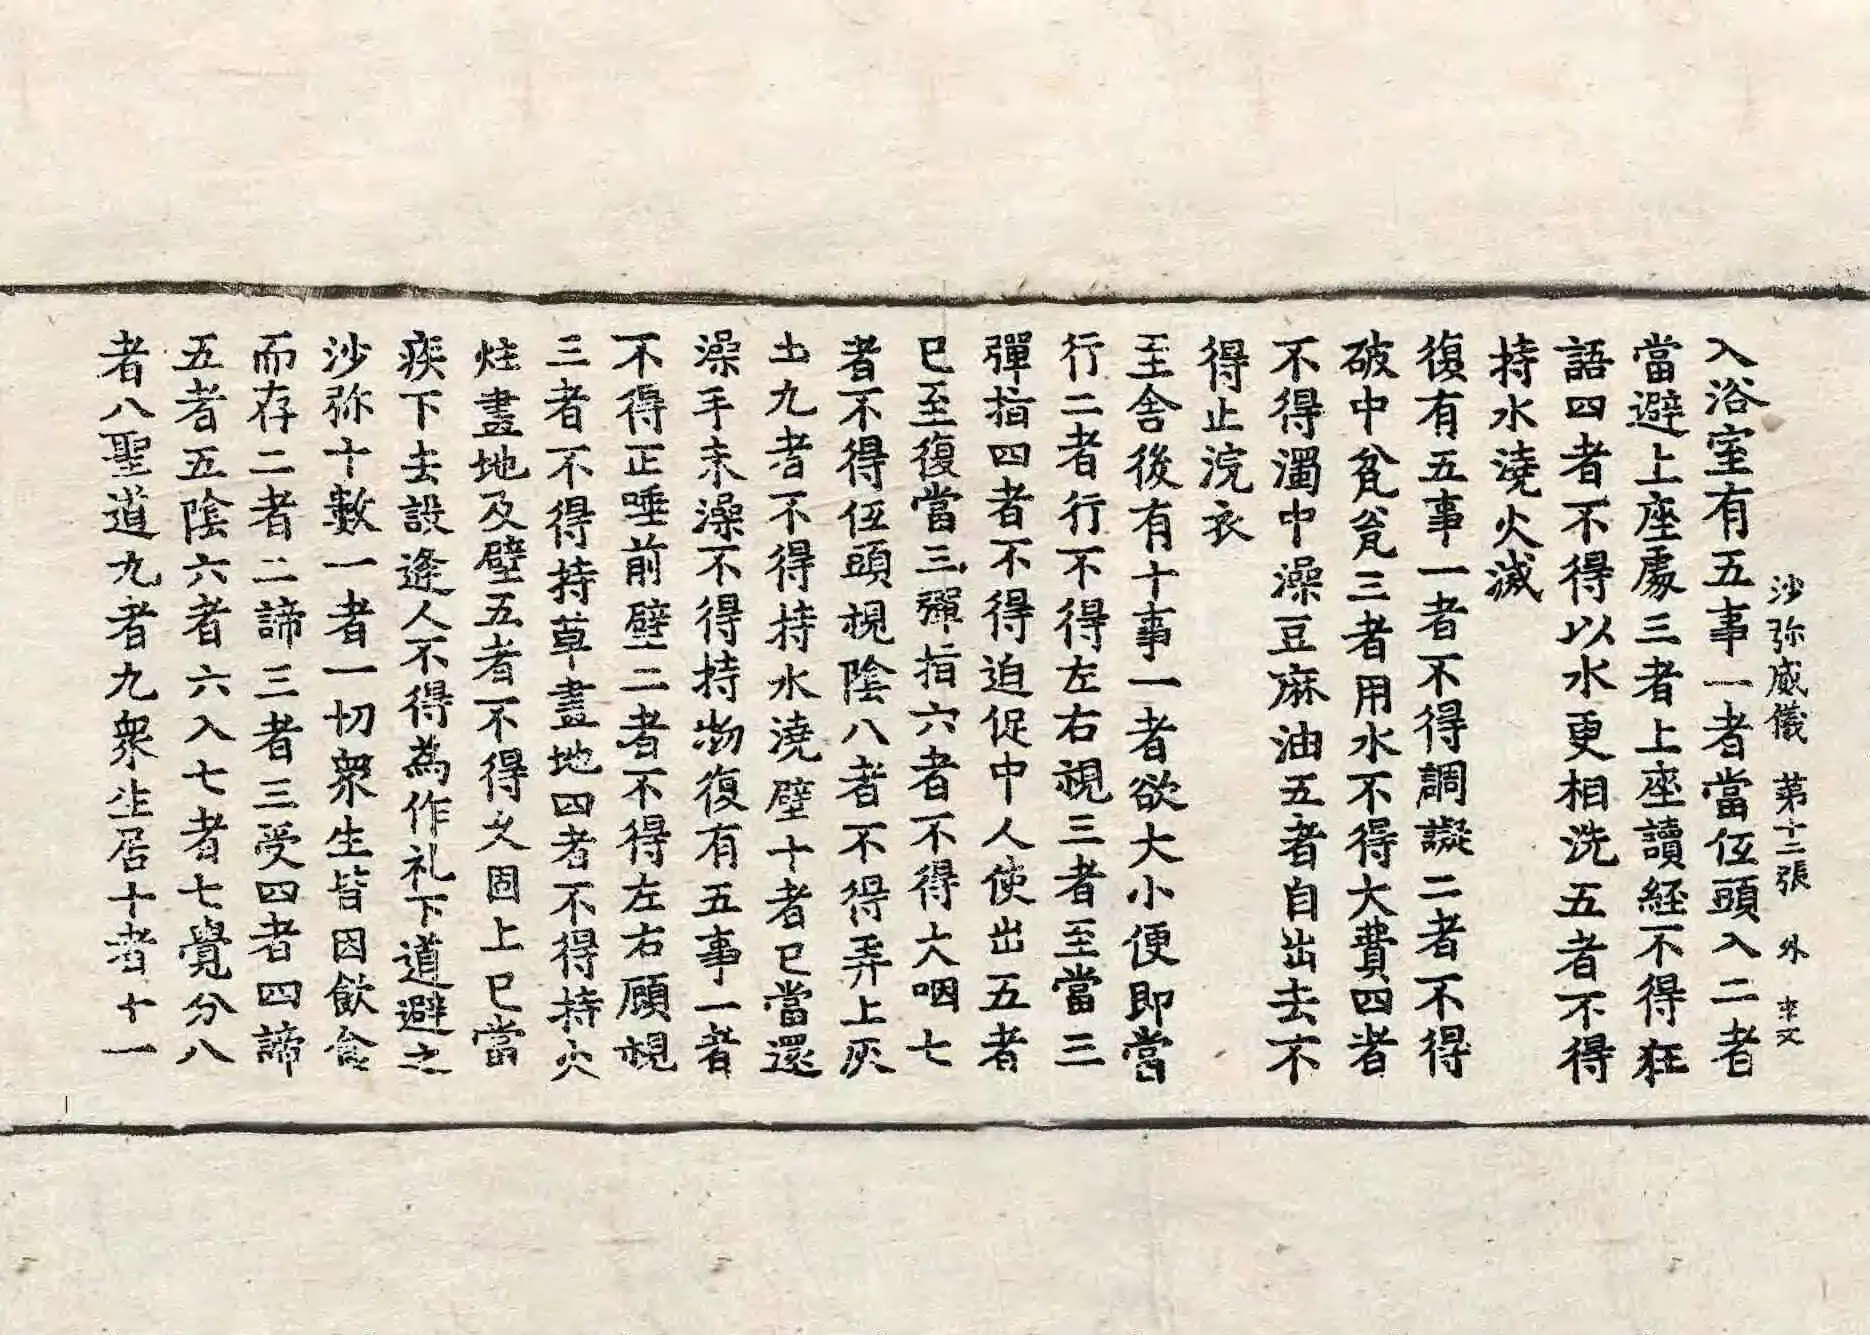 沙弥威儀 第十二張 外 宋文
入浴室有五事一者當伍頭入二者
當避上座處三者上座讀経不得狂
語四者不得以水更相洗五者不得
持水澆火滅
復有五事一者不得調譺二者不得
破中瓫瓮三者用水不得大費四者
不得濁中澡豆麻油五者自出去不
得止浣衣
至舍後有十事一者欲大小便即當
行二者行不得左右視三者至當三
彈指四者不得迫促中人使出五者
已至復當三彈指六者不得大咽七
者不得伍頭視陰八者不得弄上灰
土九者不得持水澆壁十者已當還
澡手未澡不得持物復有五事一者
不得正唾前壁二者不得左右顧視
三者不得持草畫地四者不得持火
炷畫地及壁五者不得久固上已當
疾下去設逢人不得為作礼下道避之
沙弥十數一者一切眾生皆因飲食
而存二者二諦三者三受四者四諦
五者五陰六者六入七者七覺分八
者八聖道九者九眾生居十者十一